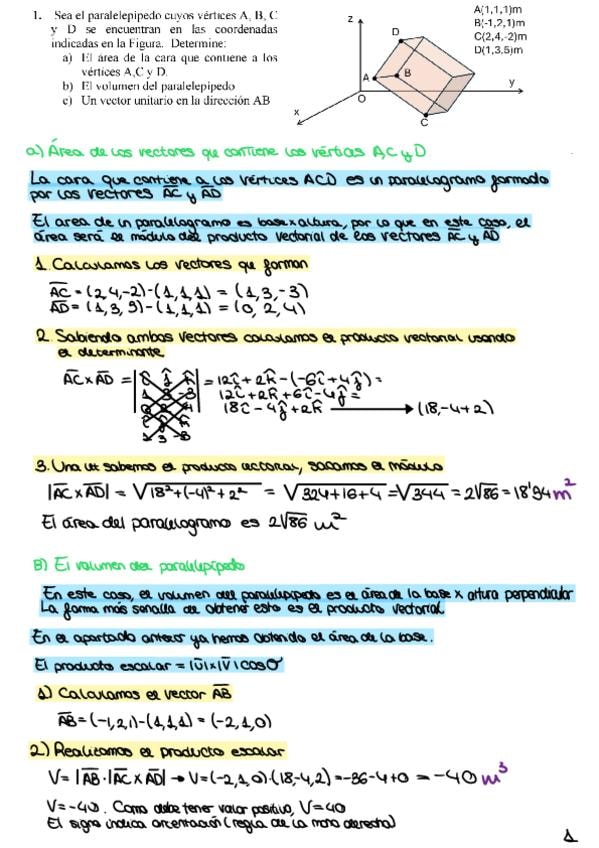 1. Sea el paralelepipedo cuyos vértices A, B, C
y D se encuentran en las coordenadas
indicadas en la Figura. Determine:
a) El área de la cara que contiene a los
vértices A,C y D.
b) El volumen del paralelepípedo
c) Un vector unitario en la dirección AB
A(1,1,1)m
B(-1,2,1)m
C(2,4,-2)m
D(1,3,5)m
z
D
A
B
O
y
x
C
a) Área de los vectores que contiene los vértices A,C y D
La cara que contiene a los vértices ACD es un paralelogramo formado
por los vectores AC y AD
El area de un paralelogramo es base x altura, por lo que en este caso, el
área será el módulo del producto vectorial de los vectores AC y AD
1. Calculamos los vectores que forman
AC = (2,4,-2)-(1,1,1) = (1,3,-3)
AD = (1,3,5)-(1,1,1) = (0,2,4)
2. Sabiendo ambos vectores calculamos el producto vectorial usando
el determinante
AC x AD = = 12î + 2k̂ - (-6î + 4ĵ) =
12î + 2k̂ + 6î - 4ĵ =
18î - 4ĵ + 2k̂ → (18,-4+2)
3. Una vez sabemos el producto vectorial, sacamos el módulo
|AC x AD| = √18²+(-4)²+2² = √324+16+4 = √344 = 2√86 = 18'94 m²
El área del paralelogramo es 2√86 m²
B) El volumen del paralelepípedo
En este caso, el volumen del paralelepipedo es el área de la base x altura perpendicular
La forma más sencilla de obtener esto es el producto vectorial
En el apartado anterior ya hemos obtenido el área de la base.
El producto escalar = |ū|x|v̄| cos σ
1) Calculamos el vector AB
AB = (-1,2,1)-(1,1,1) = (-2,1,0)
2) Realizamos el producto escalar
V = |AB·|AC x AD| → V = (-2,1,0)·(18,-4,2) = -36-4+0 = -40 m³
V = -40. Como debe tener valor positivo, V = 40
El signo indica orientación (regla de la mano derecha)
1